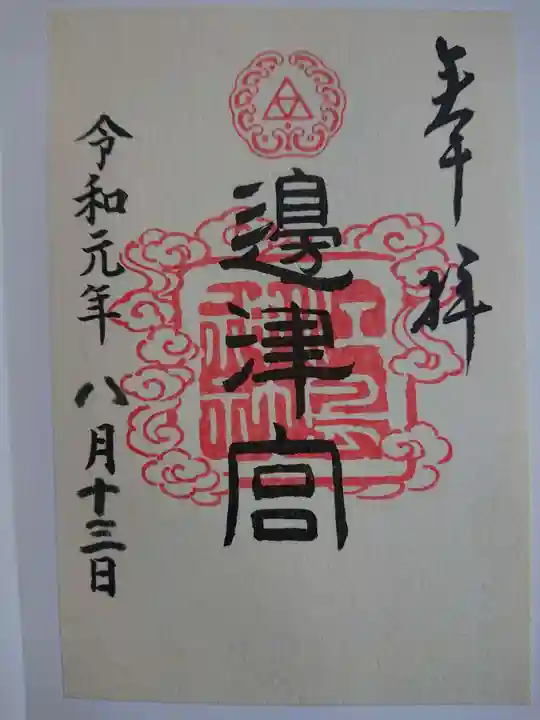 奉拝
邊津宮
令和元年八月十三日